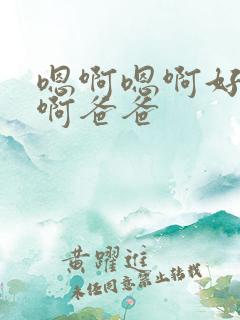 嗯啊嗯啊好
啊爸爸
黄躍進
未经同意禁止转载